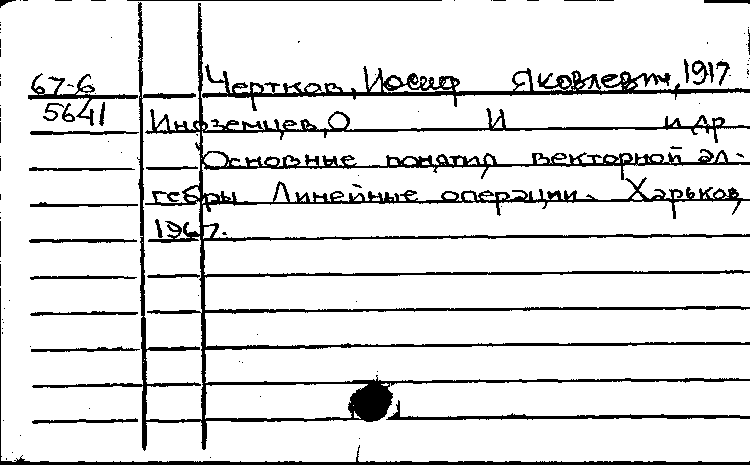 67-6 Чертков, Иосиф Яковлевич, 1917
5641 Иноземцев, О И и др
Основные понятия векторной ал-
гебры. Линейные операции. Харьков,
1967.